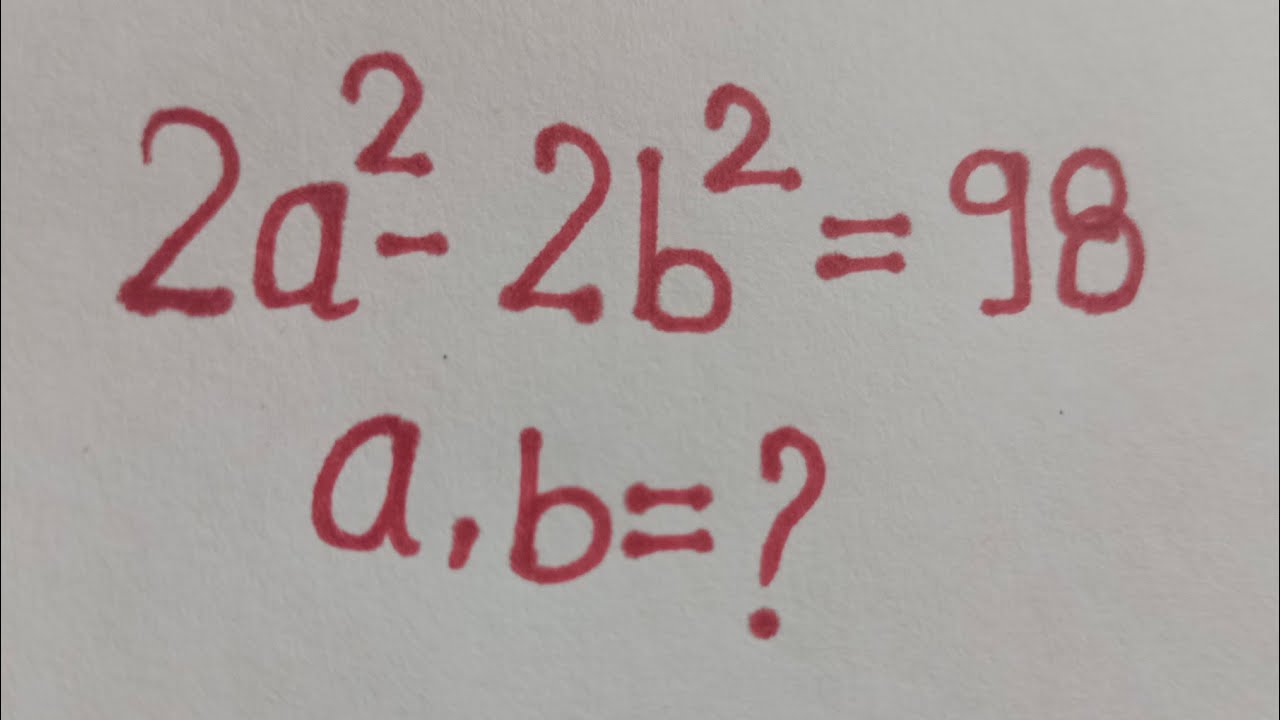 2a² - 2b² = 98
a, b = ?